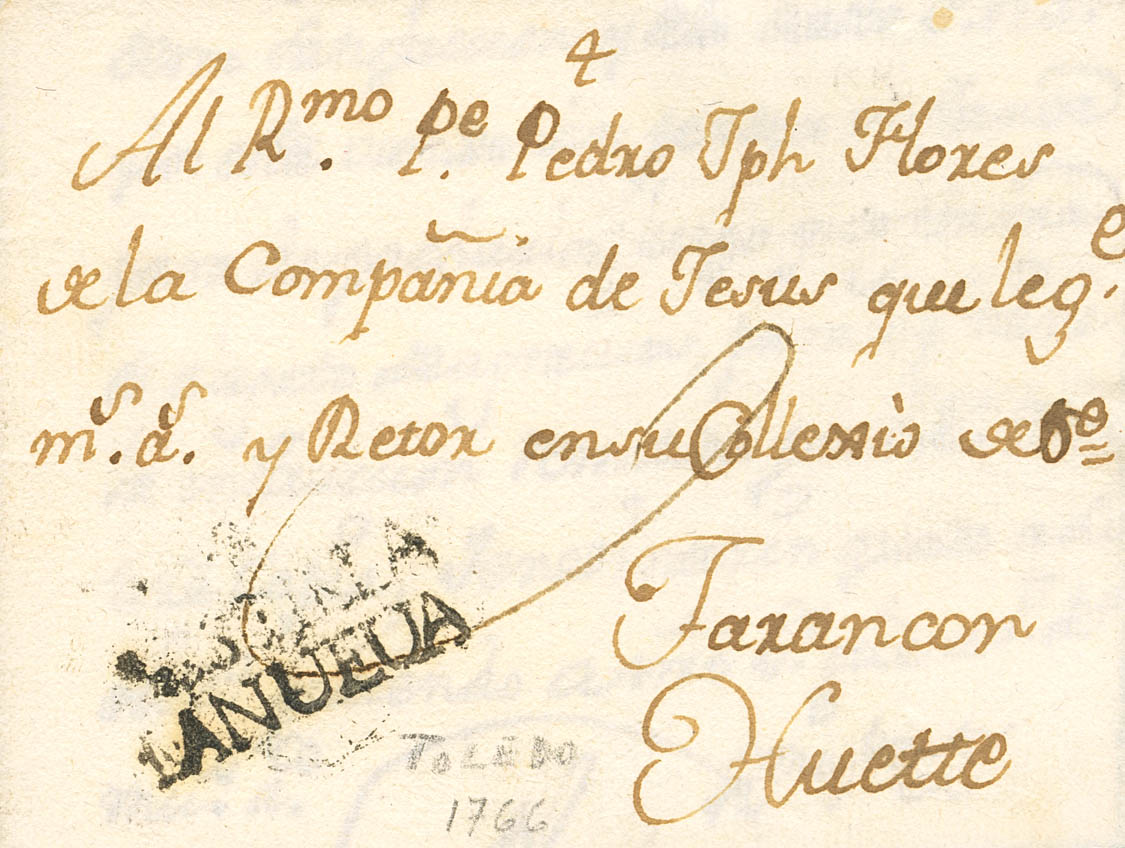 4
Al Rmo. Pe. Pedro Jph Flores
de la Compañia de Jesus que leg.e
ms. as. y Retor en su Collexio de
Tarancon
Huette
CASTILLA
LANUEUA
TOLEDO
1766